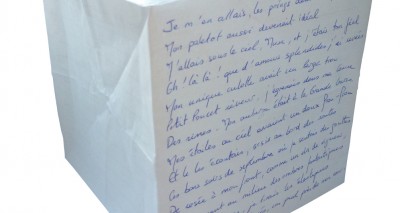 Je m'en allais, les poings dans
Mon paletot aussi devenait idéal
J'allais sous le ciel, Muse, et j'étais ton féal
Oh! là là! que d'amours splendides j'ai rêvées
Mon unique culotte avait un large trou
Petit Poucet rêveur, j'égrenais dans ma course
Des rimes. Mon auberge était à la Grande Ourse
Mes étoiles au ciel avaient un doux frou-frou
Et je les écoutais, assis au bord des routes
Ces bons soirs de septembre où je sentais des gouttes
De rosée à mon front, comme un vin de vigueur
rimant au milieu des ombres fantastiques
je tirais les élastiques
un pied près de mon